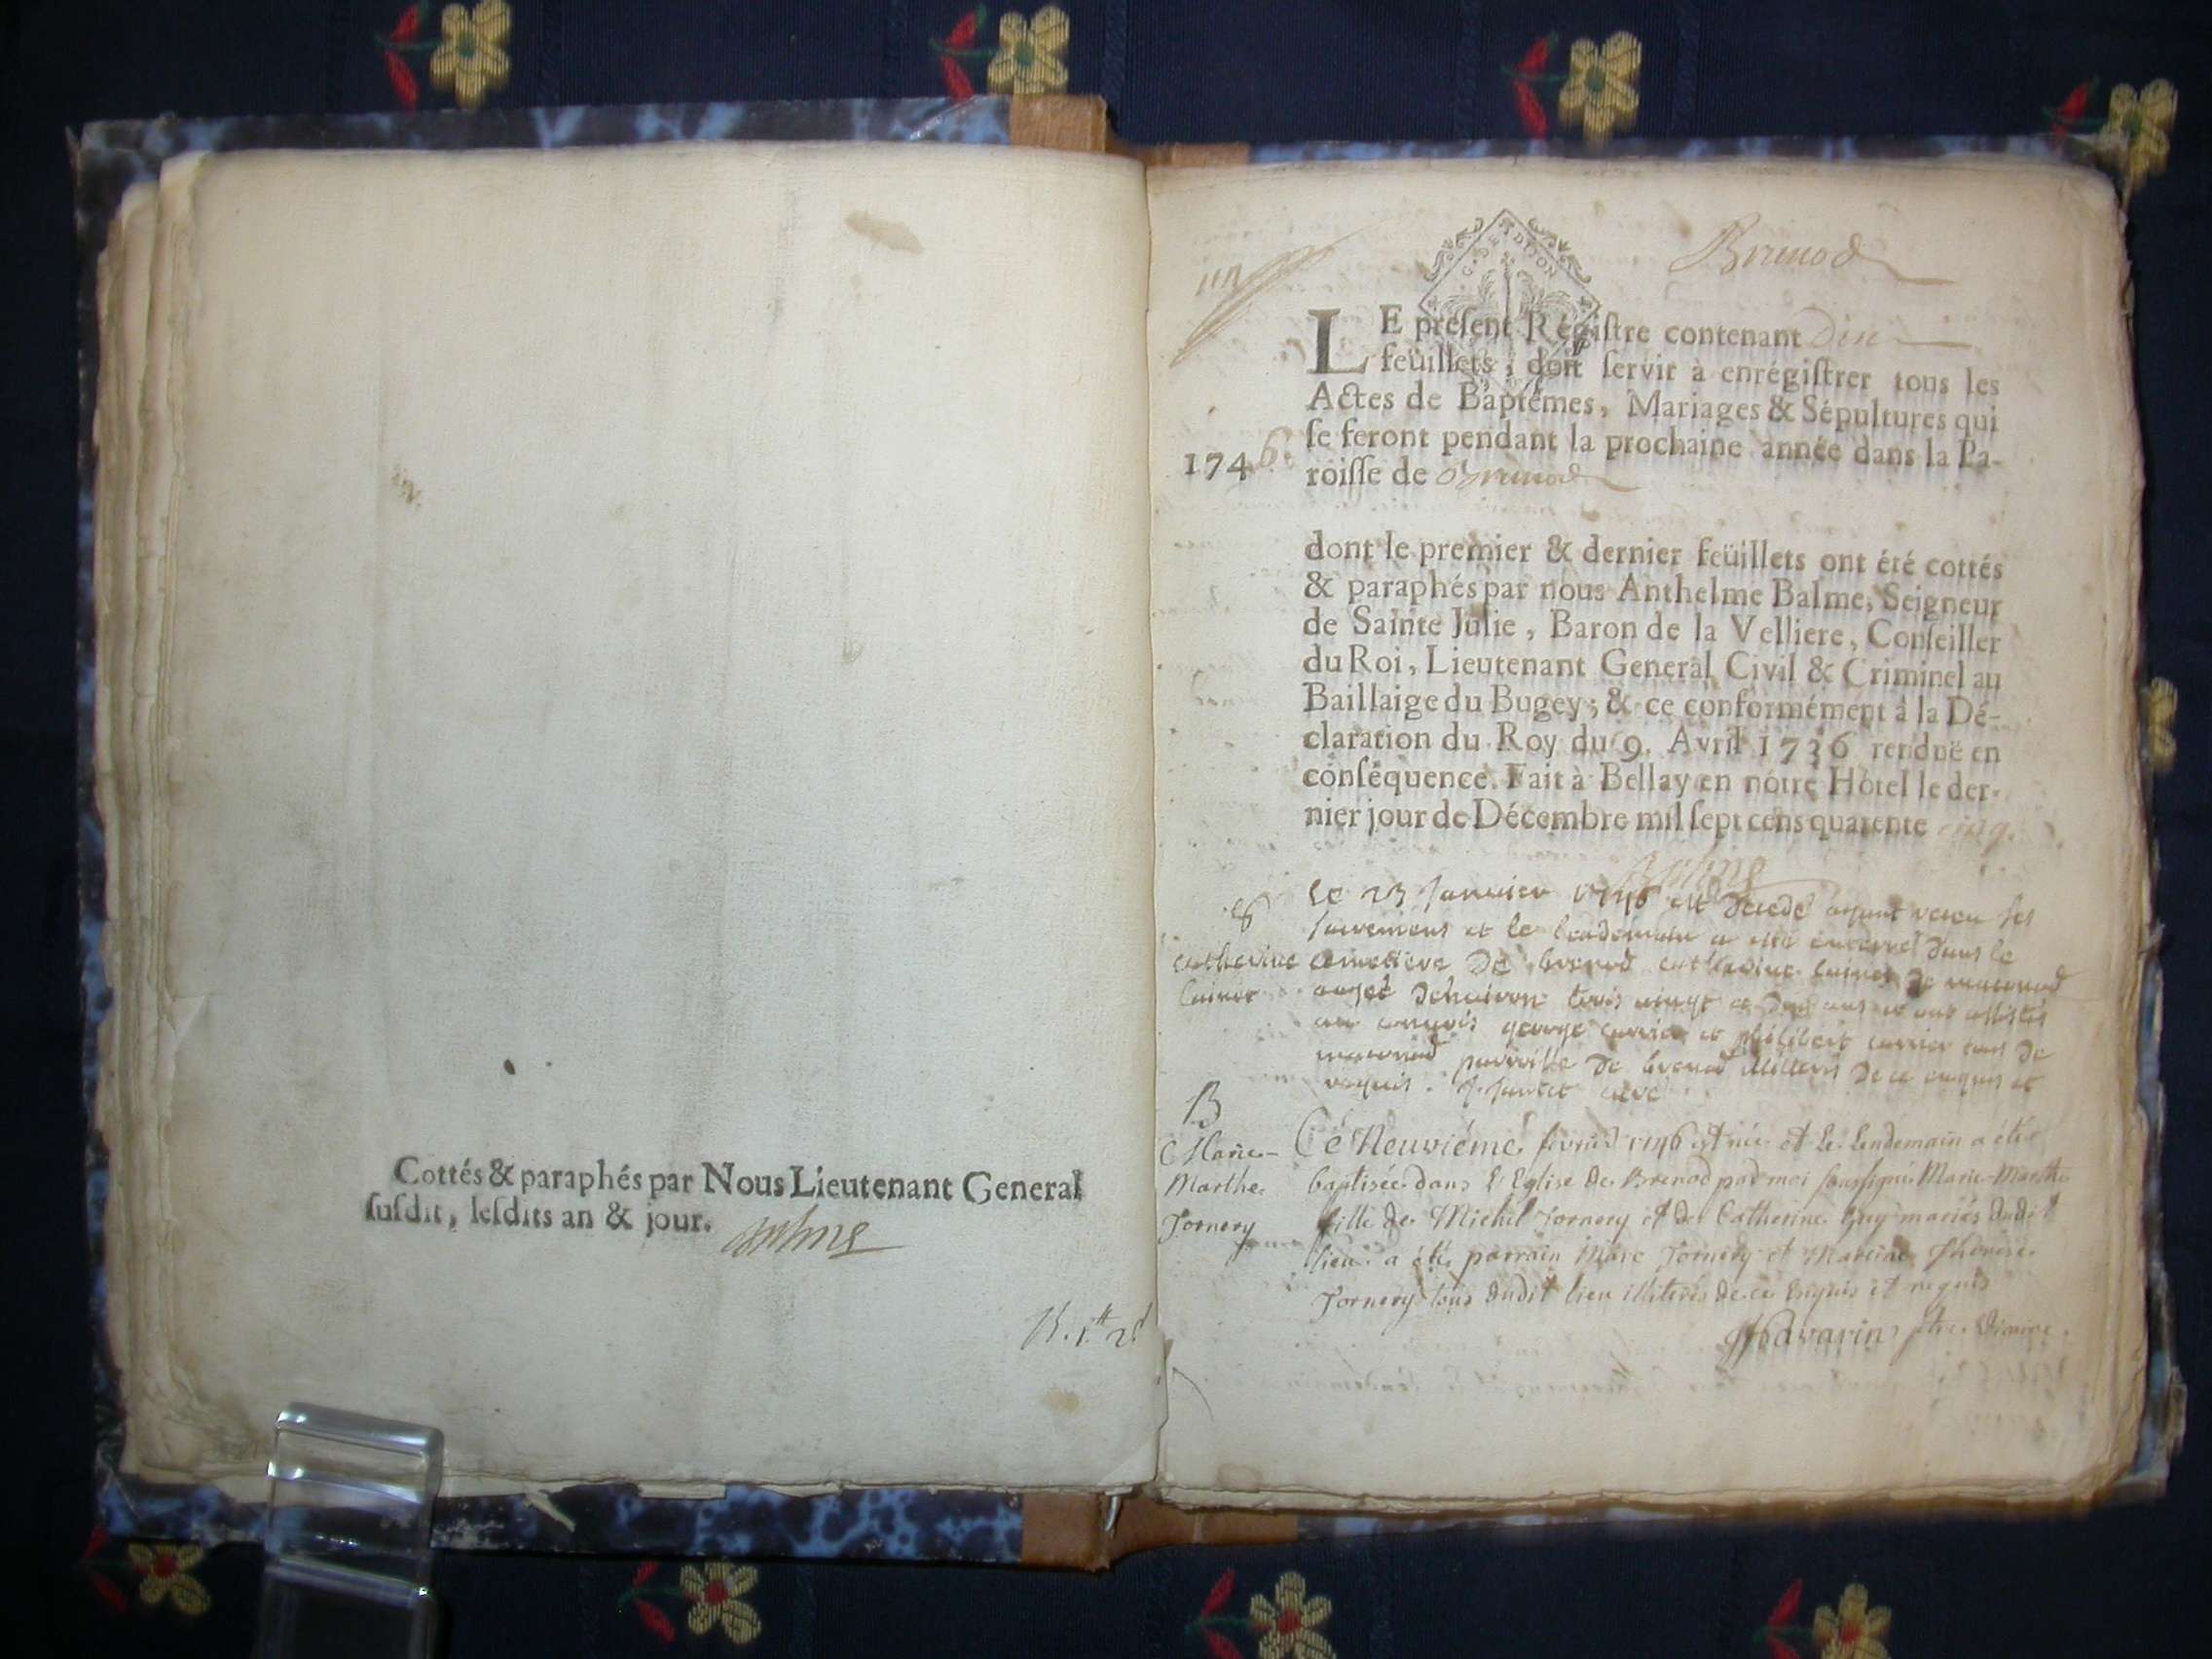 Cottés & paraphés par Nous Lieutenant General
ſuſdit, leſdits an & jour.
G. DE DIJON
Brenod
LE préſent Régiſtre contenant Dix
feüillets, doit ſervir à enrégiſtrer tous les
Actes de Baptêmes, Mariages & Sépultures qui
ſe feront pendant la prochaine année dans la Pa-
1746
roiſſe de Brenod
dont le premier & dernier feüillets ont été cottés
& paraphés par nous Anthelme Balme, Seigneur
de Sainte Julie, Baron de la Velliere, Conſeiller
du Roi, Lieutenant General Civil & Criminel au
Baillaige du Bugey; & ce conformément à la Dé-
claration du Roy du 9. Avril 1736 renduë en
conſéquence. Fait à Bellay en nôtre Hôtel le der-
nier jour de Décembre mil ſept cens quarente cinq.
Balme
le 23 Janvier 1746 est decedé ayant receu ses
sacremens et le lendemain a esté enterré dans le
catherine
cimetiere de brenod catherine de macconod
trois vingt et ans et ont assistés
au convois george carrier et philibert carrier tous de
macconod parroisse de brenod illiteris de ce enquis et
requis. curé
B
Marie-
Marthe
Tornery
Ce Neuviéme fevrier 1746 est née et le lendemain a éte
baptisée dans l'Eglise de Brenod par moi soussigné Marie Marthe
fille de Michel Tornery et de Catherine mariés dudit
lieu a été parrain Marc Tornery et Marraine
Tornery tous dudit lieu illiterés de ce Enquis et requis
Vicaire